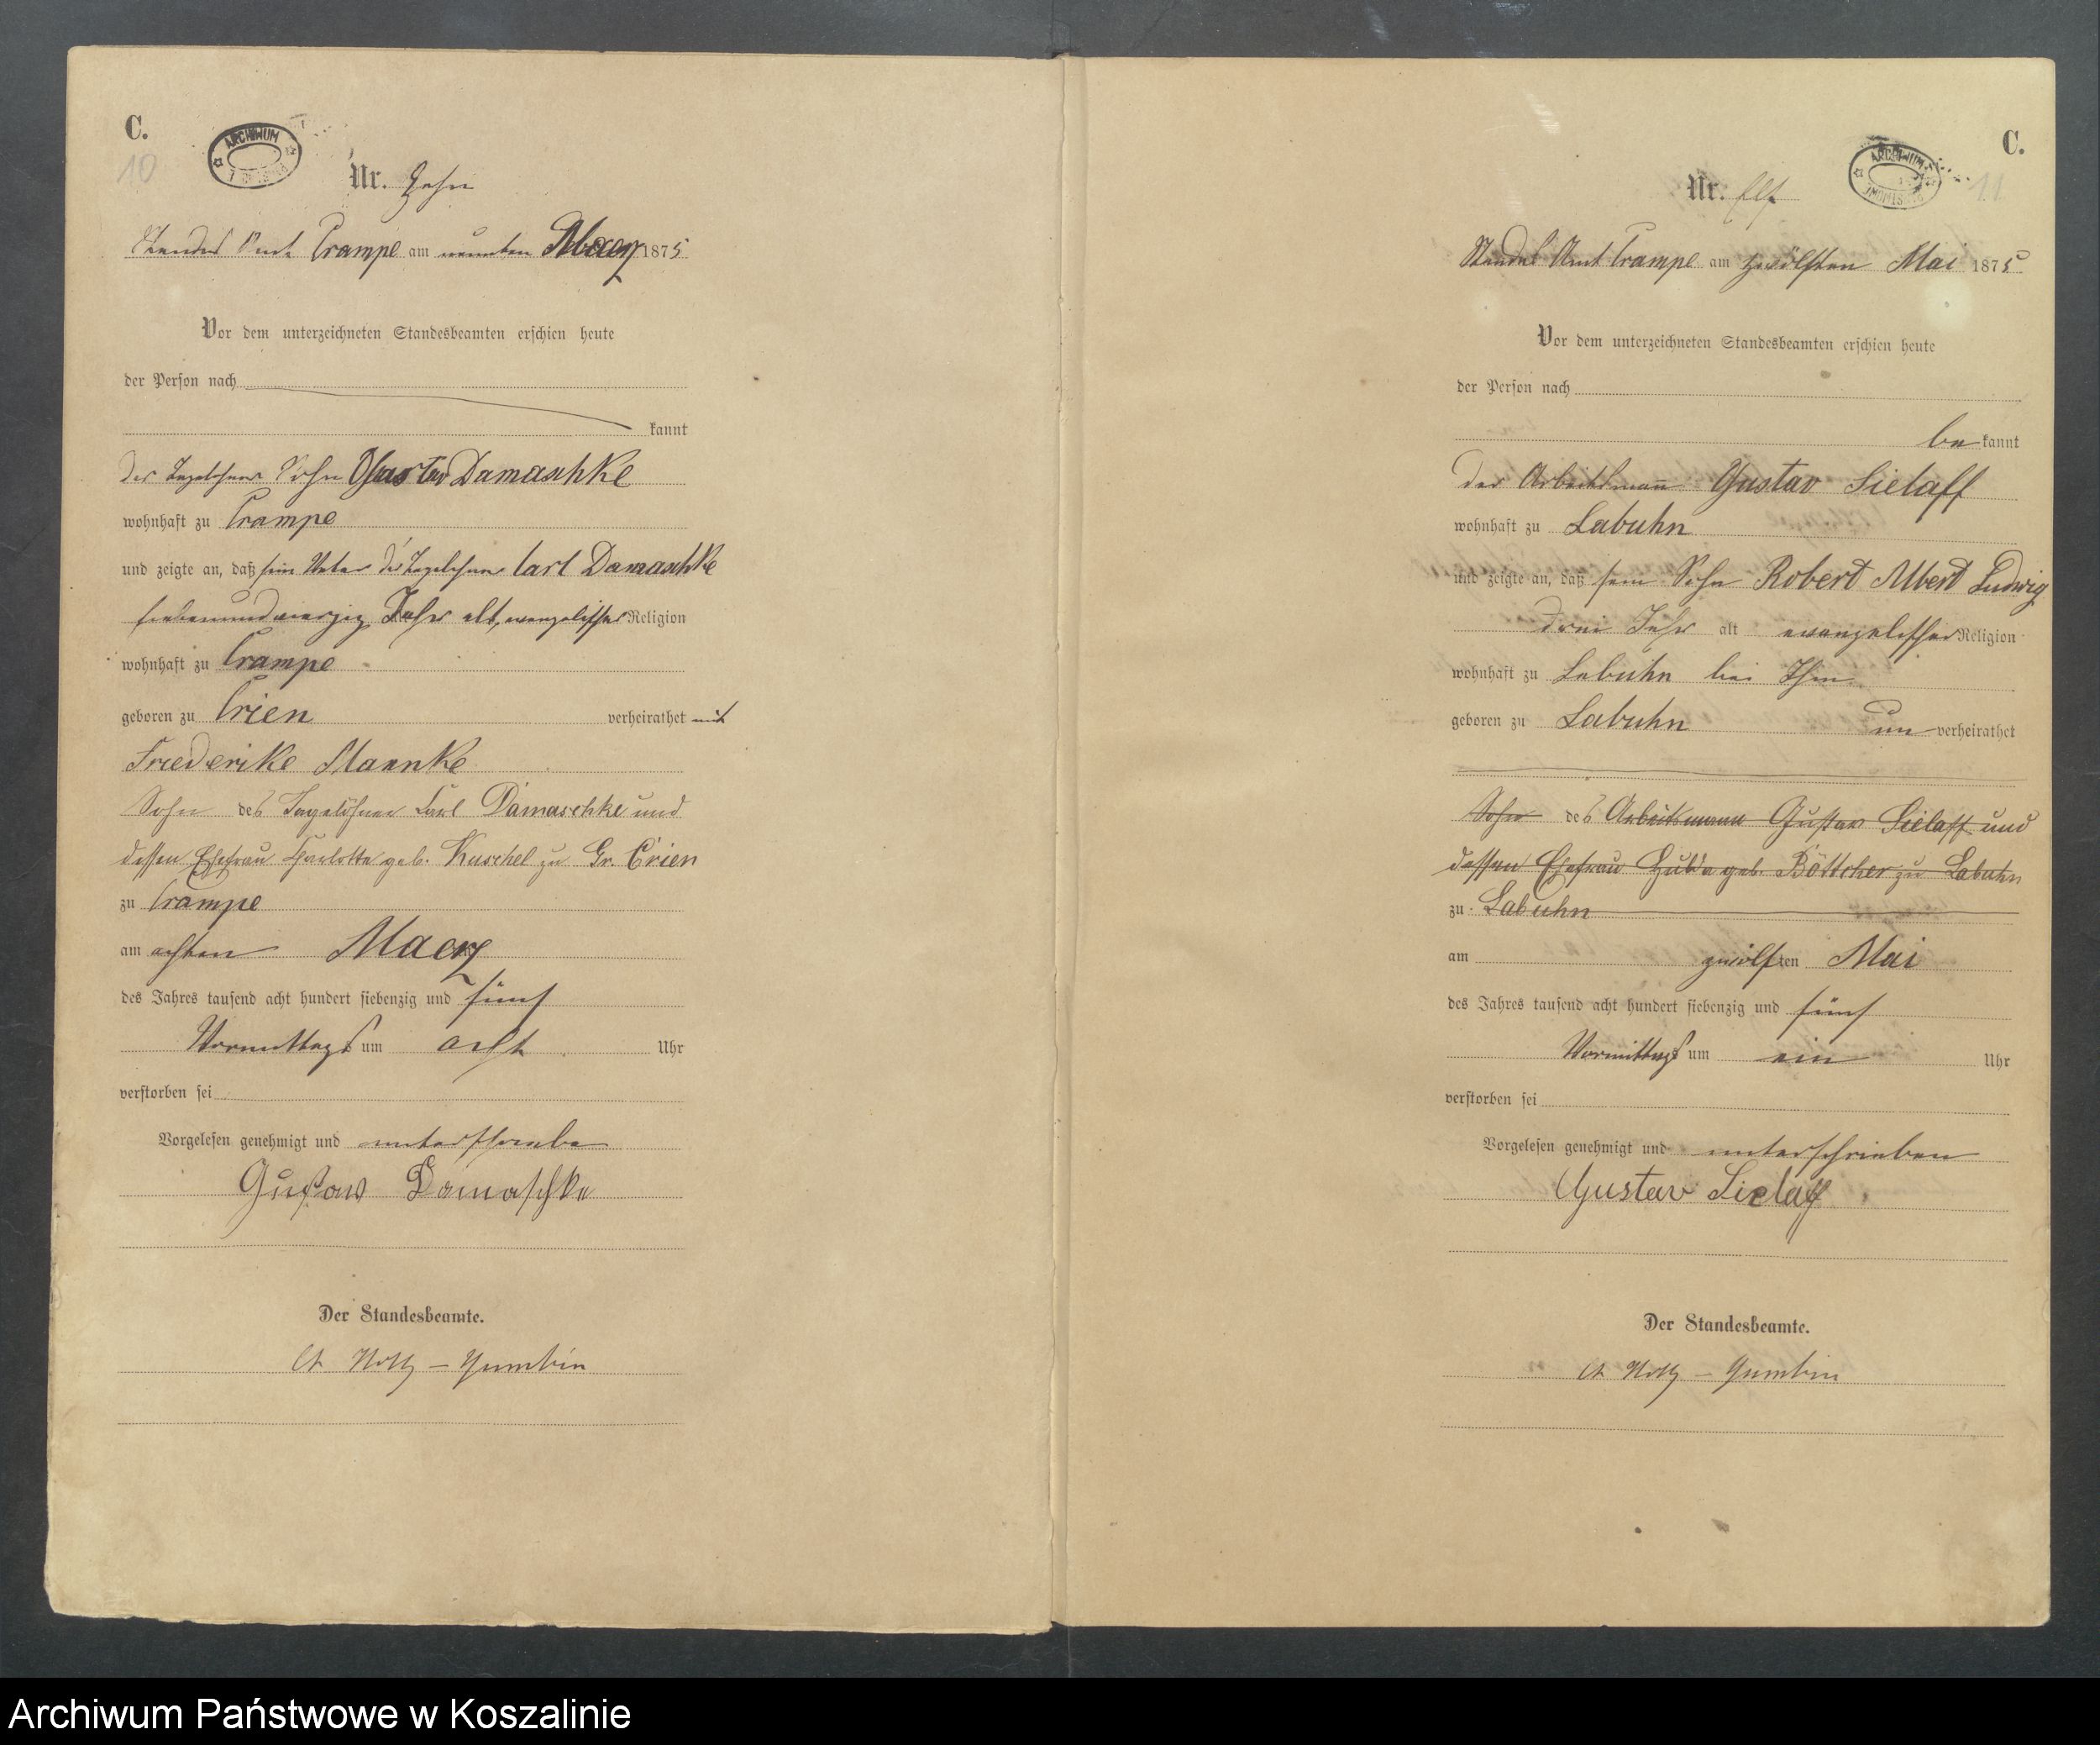 C.
10
ARCHIWUM
Nr. Zehn
Standes Amt Crampe am neunten Maerz 1875
Vor dem unterzeichneten Standesbeamten erschien heute
der Person nach
kannt
der Tagelöhner Sohn Gustav Damaschke
wohnhaft zu Crampe
und zeigte an, daß sein Vater der Tagelöhner Carl Damaschke
siebenundvierzig Jahr alt, evangelischer Religion
wohnhaft zu Crampe
geboren zu Crien verheirathet mit
Friederike Mannke
Sohn des Tagelöhner Carl Damaschke und
dessen Ehefrau Charlotte geb. Kuschel zu Gr. Crien
zu Crampe
am achten Maerz
des Jahres tausend acht hundert siebenzig und fünf
Vormittags um acht Uhr
verstorben sei
Vorgelesen genehmigt und unterschrieben
Gustav Damaschke
Der Standesbeamte.
C.
11
ARCHIWUM
Nr. Elf
Standes Amt Crampe am zwölften Mai 1875
Vor dem unterzeichneten Standesbeamten erschien heute
der Person nach
be kannt
der Arbeitsmann Gustav Sielaff
wohnhaft zu Labuhn
und zeigte an, daß sein Sohn Robert Albert Ludwig
drei Jahr alt evangelischer Religion
wohnhaft zu Labuhn bei Ihm
geboren zu Labuhn un verheirathet
Sohn des Arbeitsmann Gustav Sielaff und
dessen Ehefrau Hulda geb. Böttcher zu Labuhn
zu Labuhn
am zwölften Mai
des Jahres tausend acht hundert siebenzig und fünf
Vormittags um ein Uhr
verstorben sei
Vorgelesen genehmigt und unterschrieben
Gustav Sielaff
Der Standesbeamte.
Archiwum Państwowe w Koszalinie